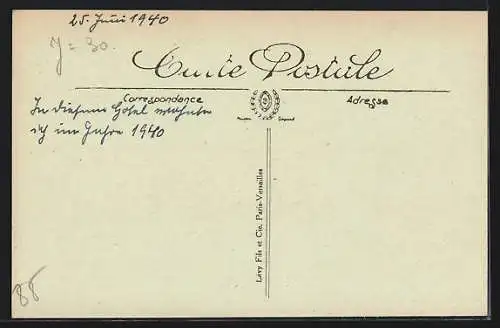 25. Juni 1940
J = 30.
Carte Postale
Correspondance
Adresse
In diesem Hotel wohnte
ich im Jahre 1940
Lévy Fils et Cie, Paris-Versailles
88